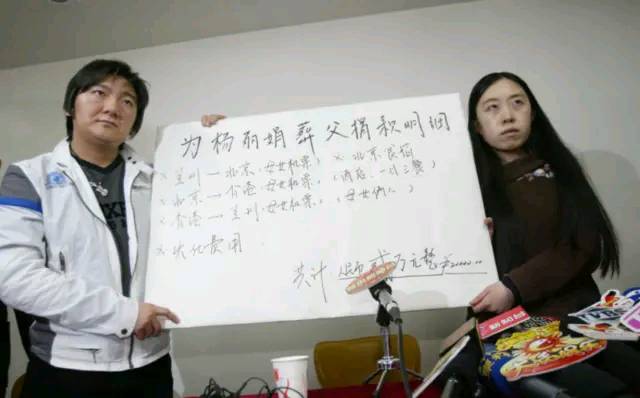 为杨丽娟葬父捐款明细
× 兰州—北京,母女机票, × 北京民宿
× 北京→香港,母女机票, (酒店,一日三餐)
× 香港→兰州,母女机票, (母女俩人)
× 火化费用
共计 人民币 贰万元整 ¥20000.00